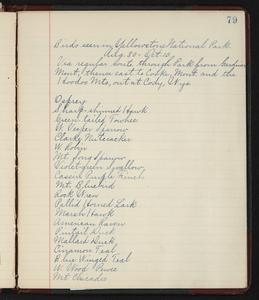 79
Birds seen in Yellowstone National Park
Aug. 30 - Oct. 10,
Via regular route through Park from Gardiner
Mont., thence east to Cooke, Mont. and the
Hoodoo Mts, out at Cody, Wyo.
Osprey
Sharp-shinned Hawk
Green-tailed Towhee
W. Vesper Sparrow
Clarks Nutcracker
W. Robin
Mt. Song Sparrow
Violet-green Swallow
Cassin Purple Finch
Mt. Bluebird
Rock Wren
Pallid Horned Lark
Marsh Hawk
American Raven
Pintail Duck
Mallard Duck
Cinnamon Teal
Blue Winged Teal
W. Wood Pewee
Mt Chicadee